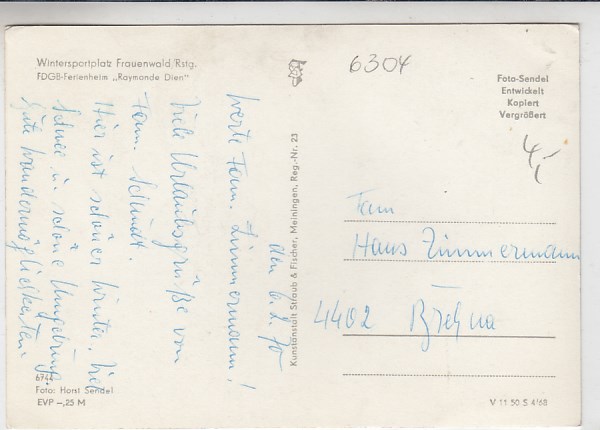 Wintersportplatz Frauenwald/Rstg.
FDGB-Ferienheim „Raymonde Dien"
6304
Foto-Sendel
Entwickelt
Kopiert
Vergrößert
4,-
den 6.2.70
Werte Fam. Zimmermann!
Viele Urlaubsgrüße von
Fam. Schmidt.
Hier ist schöner Winter, viel
Schnee in schöne Umgebung.
Gute Wandermöglichkeiten
Kunstanstalt Straub & Fischer, Meiningen, Reg.-Nr. 23
Fam
Hans Zimmermann
4402 Brehna
6744
Foto: Horst Sendel
EVP -,25 M
V 11 50 S 4/68